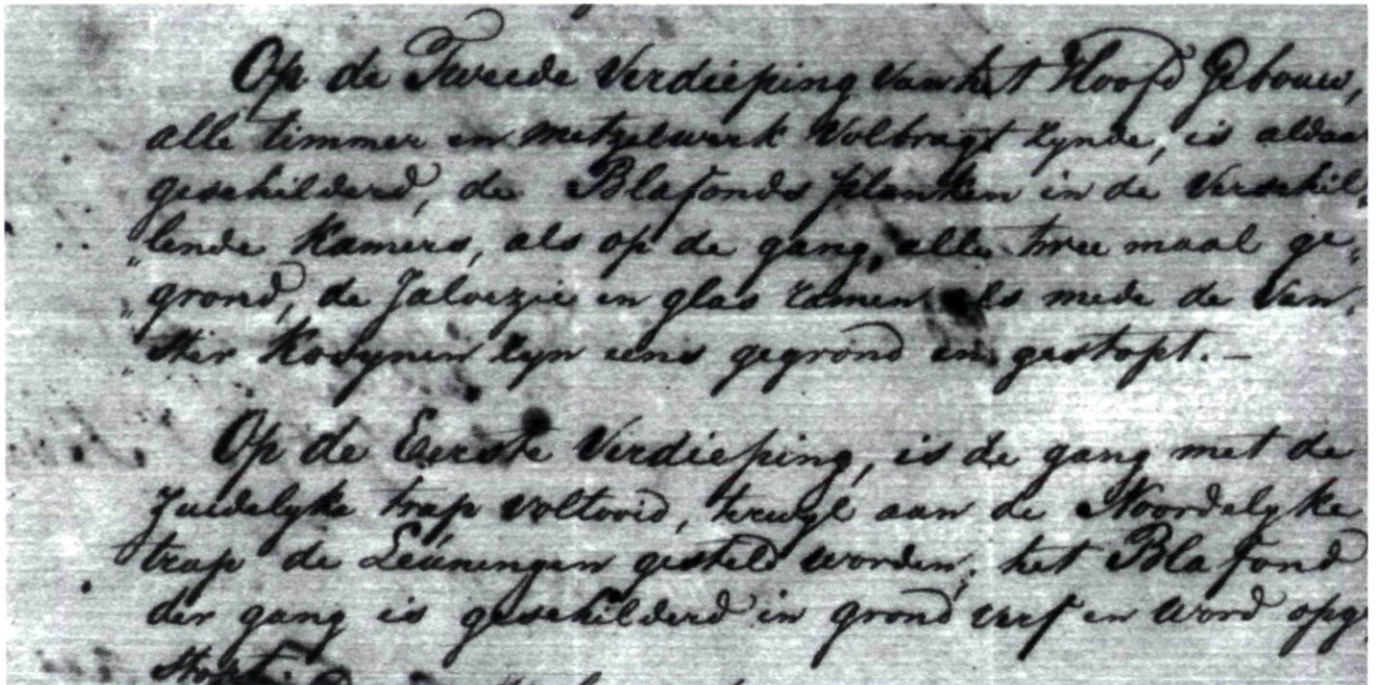 Op de Tweede Verdieping van het Hoofd Gebouw,
alle timmer en metzelwerk Volbragt zynde, is aldaar
geschilderd, de Blafonds planken in de Verschil,
„lende Kamers, als op de gang, alle twee maal ge„
„grond, de Jaloezie en glas ramen als mede de Van„
„ster Kosynen zyn eens gegrond en gestopt. —
Op de Eerste Verdieping, is de gang met de
Zuidelyke trap voltooid, terwyl aan de Noordelyke
trap de Leuningen gesteld worden, het Blafond
der gang is geschilderd in grond verf en word opge
stopt.